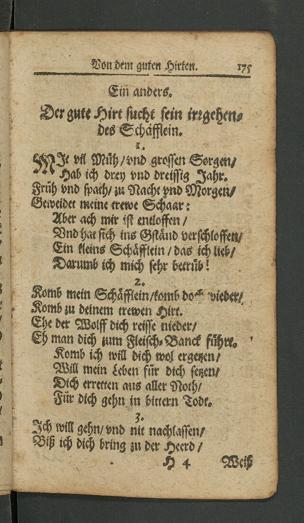 Von dem guten Hirten. 175
Ein anders.
Der gute Hirt sucht sein irrgehen-
des Schäfflein.
1.
MIt vil Müh/ vnd grossen Sorgen/
Hab ich drey vnd dreissig Jahr.
Früh vnd spath/ zu Nacht vnd Morgen/
Geweidet meine trewe Schaar:
Aber ach mir ist entloffen/
Vnd hat sich ins Gständ verschloffen/
Ein kleins Schäfflein/ das ich lieb/
Darumb ich mich sehr betrüb!
2.
Komb mein Schäfflein/ komb doch wieder/
Komb zu deinem trewen Hirt.
Ehe der Wolff dich reisse nieder/
Eh man dich zum Fleisch-Banck führt.
Komb ich will dich wol ergetzen/
Will mein Leben für dich setzen/
Dich erretten aus aller Noth/
Für dich gehn in bittern Todt.
3.
Ich will gehn/ vnd nit nachlassen/
Biß ich dich bring zu der Heerd/
H 4 Weiß